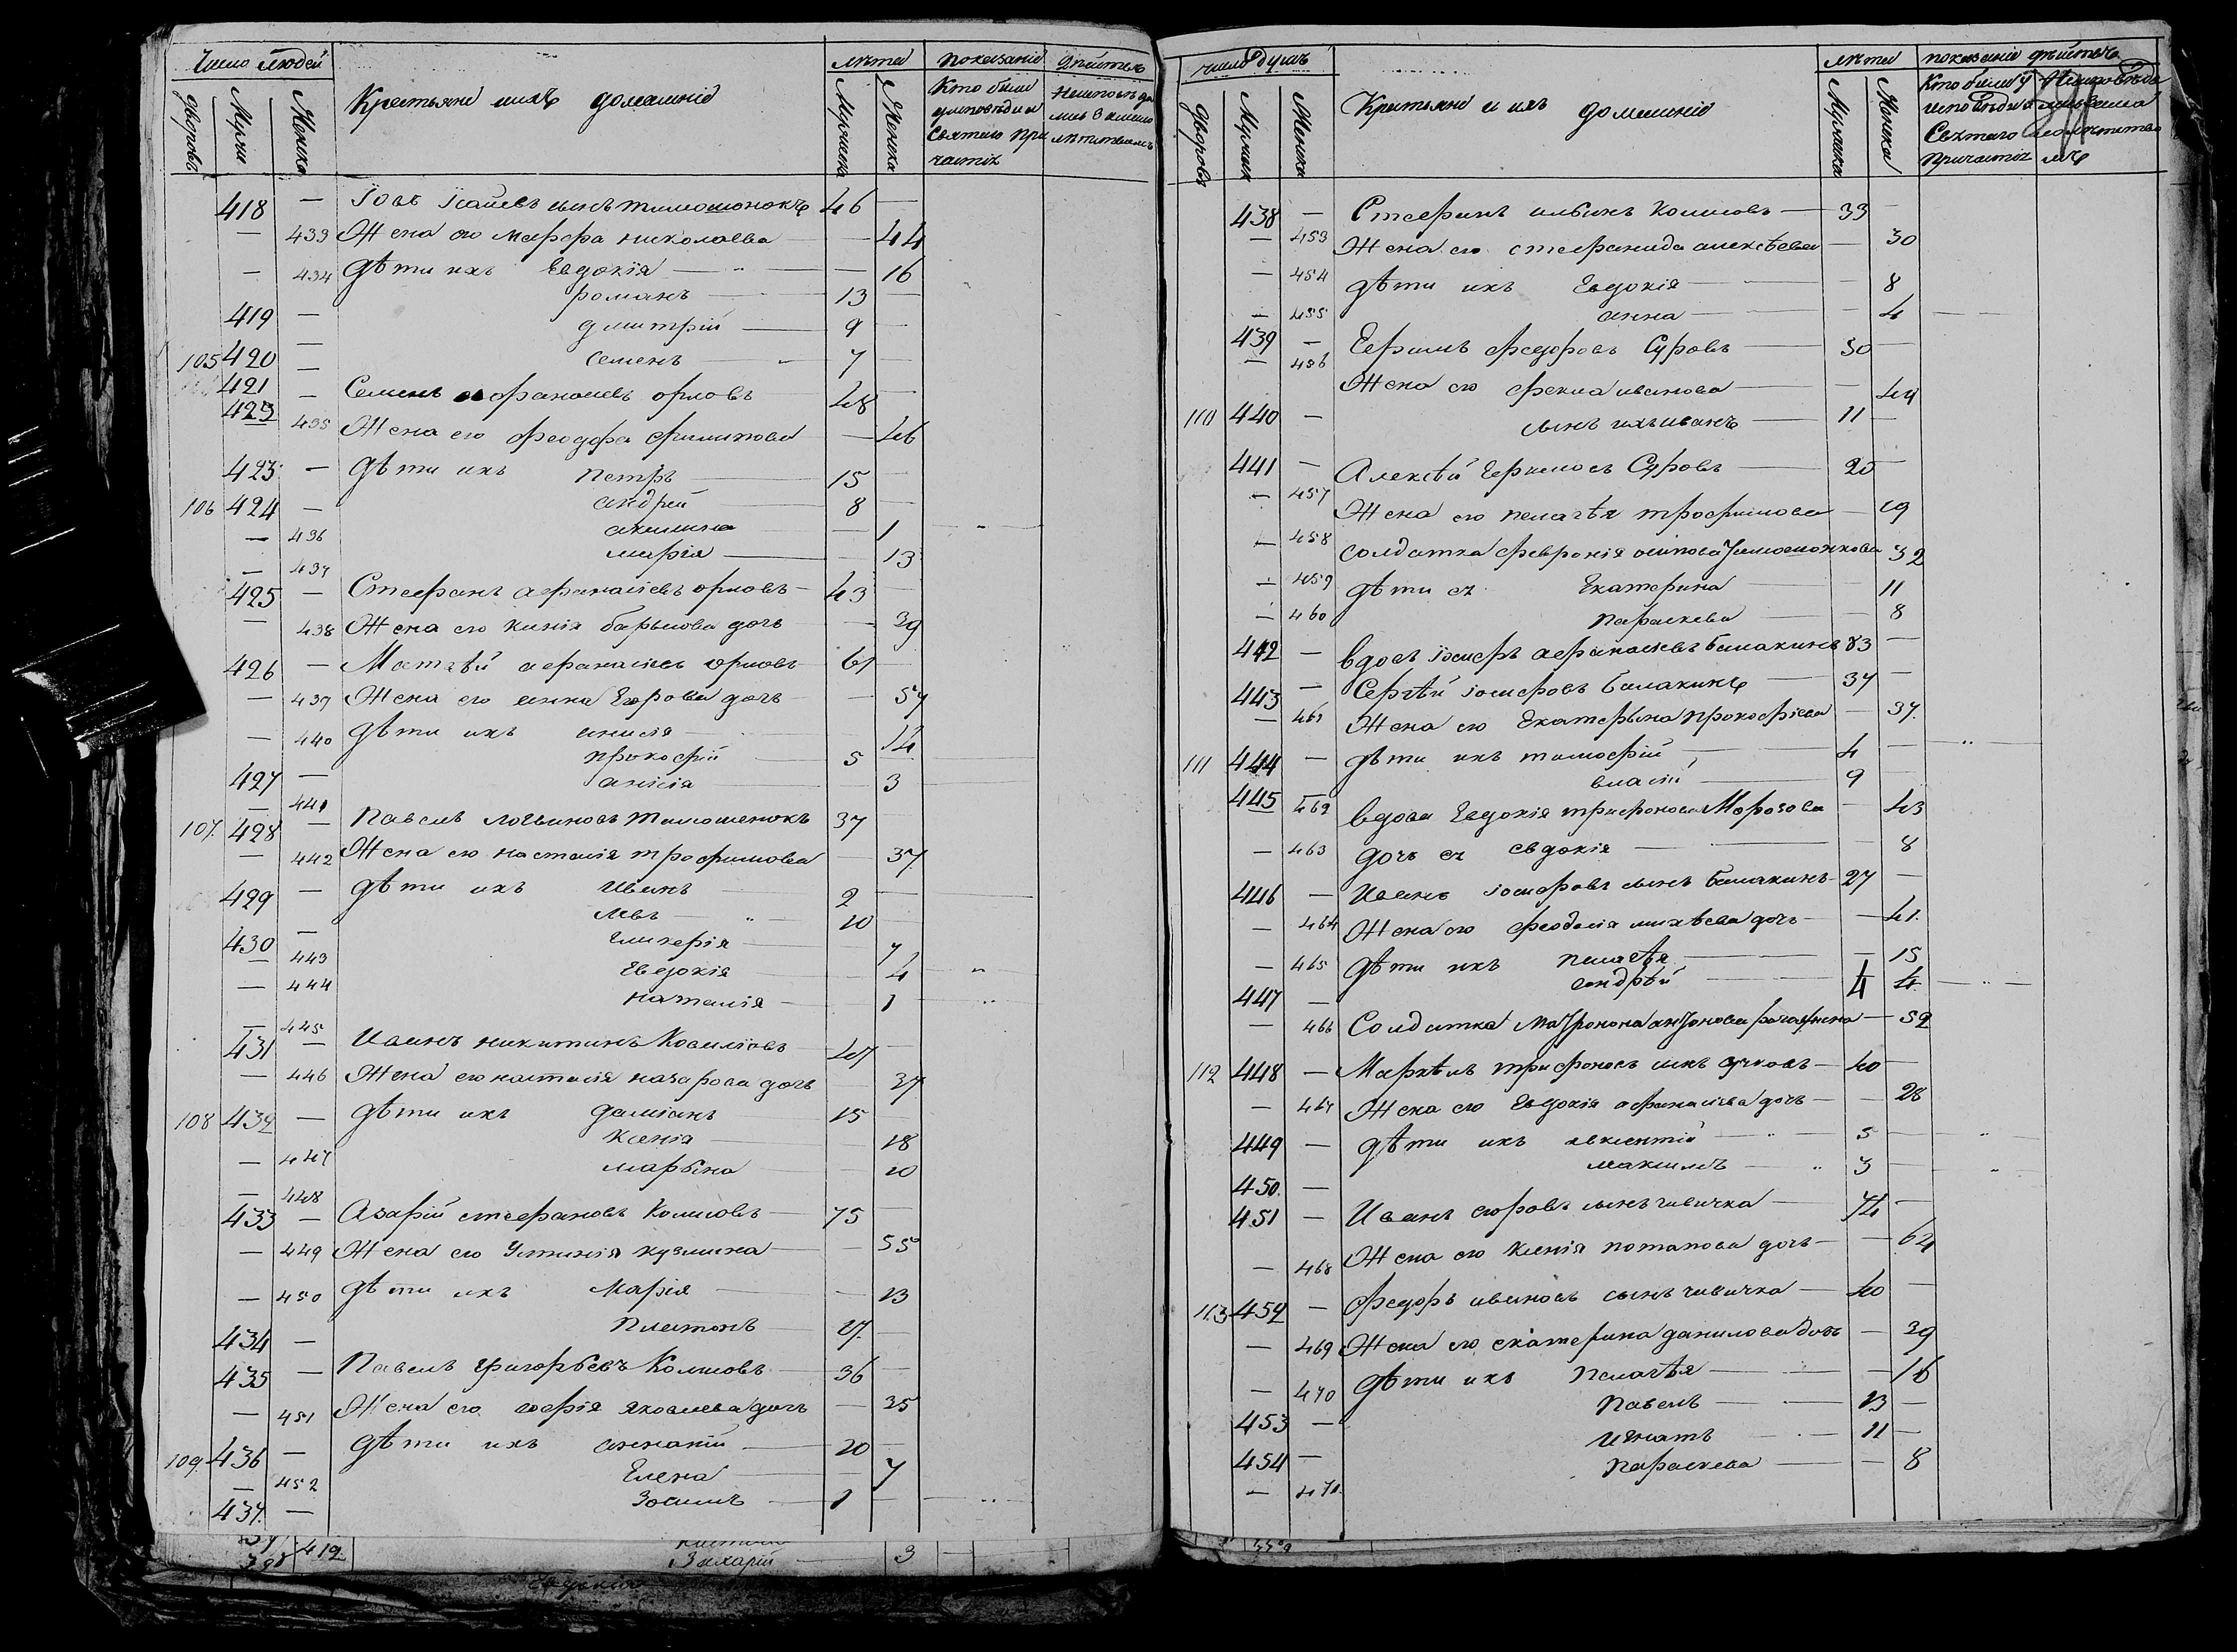 Число людей
лѣта показаніе дѣйств
дворовъ Мужи Женска Крестьяне ихъ домашніе Мужска Женска Кто были
Святаго При
частія
418 — Іовъ сынъ тимошонокъ 46 —
— 433 Жена его марфа николаева — 44
— 434 Дѣти ихъ Евдокія — 16
романъ 13 —
419 — дмитрій 9 —
105 420 — семенъ 7
421 — Семенъ афанасіевъ орловъ 48 —
422 435 Жена его феодора филипова — 46
423 — Дѣти ихъ петръ 15 —
106 424 — андрей 8 —
— 436 акилина — 1
— 437 марія — 13
425 — Стефанъ афанасіевъ орловъ 43 —
— 438 Жена его дочь — 39
426 — Матвѣй афанасіевъ орловъ 61
— 439 Жена его анна Егорова дочь — 57
— 440 Дѣти ихъ анисія — 14
прокофій 5
427 — анисія — 3
— 441
107. 428 — Павелъ логвиновъ тимошенокъ 37
— 442 Жена его настасія трофимова — 37.
429 — Дѣти ихъ Иванъ 2 —
430 — левъ 10 —
— 443 гликерія 7
— 444 Евдокія — 4
— 445 наталія — 1
431 — Иванъ никитинъ 47 —
— 446 Жена его наталія назарова дочь 37
108 432 — Дѣти ихъ даміанъ 15
— 447 Ксенія 18
— 448 марьяна — 10
433 — Азарій стефановъ Комисовъ 75 —
— 449 Жена его Устинія кузмина — 55
— 450 Дѣти ихъ Марія — 13
434 — Платонъ 17. —
435 — Павелъ григорьевъ Комисовъ 36 —
— 451 Жена его софія яковлева дочь — 35
109. 436 — Дѣти ихъ ананій 10 —
— 452 Елена — 7
437. — Зосимъ 1 —
412 Захарій 3
Евдокія
число душъ лѣта показаніе дѣйств
Дворовъ Мужска Женска Крестьяне и ихъ домашніе Мужска Женска Кто были у
исповѣди и
Святаго
причастія
438 — Стефанъ Комисовъ 33 —
— 453 Жена его стефанида алексѣева — 30
— 454 Дѣти ихъ Евдокія — 8
— 455 анна — 4
439 — Ефимъ федоровъ Суровъ 50 —
— 456 Жена его фекла иванова — 44
110 440 — сынъ ихъ иванъ 11 —
441 — Алексѣй Ефимовъ Суровъ 20 —
— 457 Жена его пелагѣя трофимова — 19
— 458 солдатка февронія осипова Тимошонкова 32
— 459 Дѣти ея Екатерина 11
— 460 параскева — 8
442 — вдовъ іосифъ афанасіевъ балакинъ 83 —
443 — Сергѣй іосифовъ балакинъ 37 —
— 461 Жена его Екатерына прокофіева — 37.
111 444 — Дѣти ихъ тимофій 4 —
445 власій 9
462 вдова Евдокія трифонова Морозова — 43
— 463 дочь ея евдокія — 8
446 — Иванъ іосифовъ сынъ балакинъ 27 —
— 464 Жена его феодосія михѣева дочь — 41.
— 465 Дѣти ихъ пелагѣя — 15
447 — андрѣй 4 4
— 466 Солдатка Матрона антонова — 52
112 448 — Маркелъ трифоновъ сынъ 40 —
— 467 Жена его Евдокія афанасіева дочь — 28
449 — Дѣти ихъ авксентій 5 —
450. — максимъ 3 —
451 — Иванъ егоровъ сынъ чивичка 74 —
— 468 Жена его ксенія потапова дочь — 64
113 452 — Федоръ ивановъ сынъ чивичка 40 —
— 469 Жена его екатерина данилова дочь — 39
— 470 Дѣти ихъ Пелагѣя — 16
453 — Павелъ 13 —
454 — Игнатъ 11 —
— 471. Параскева — 8